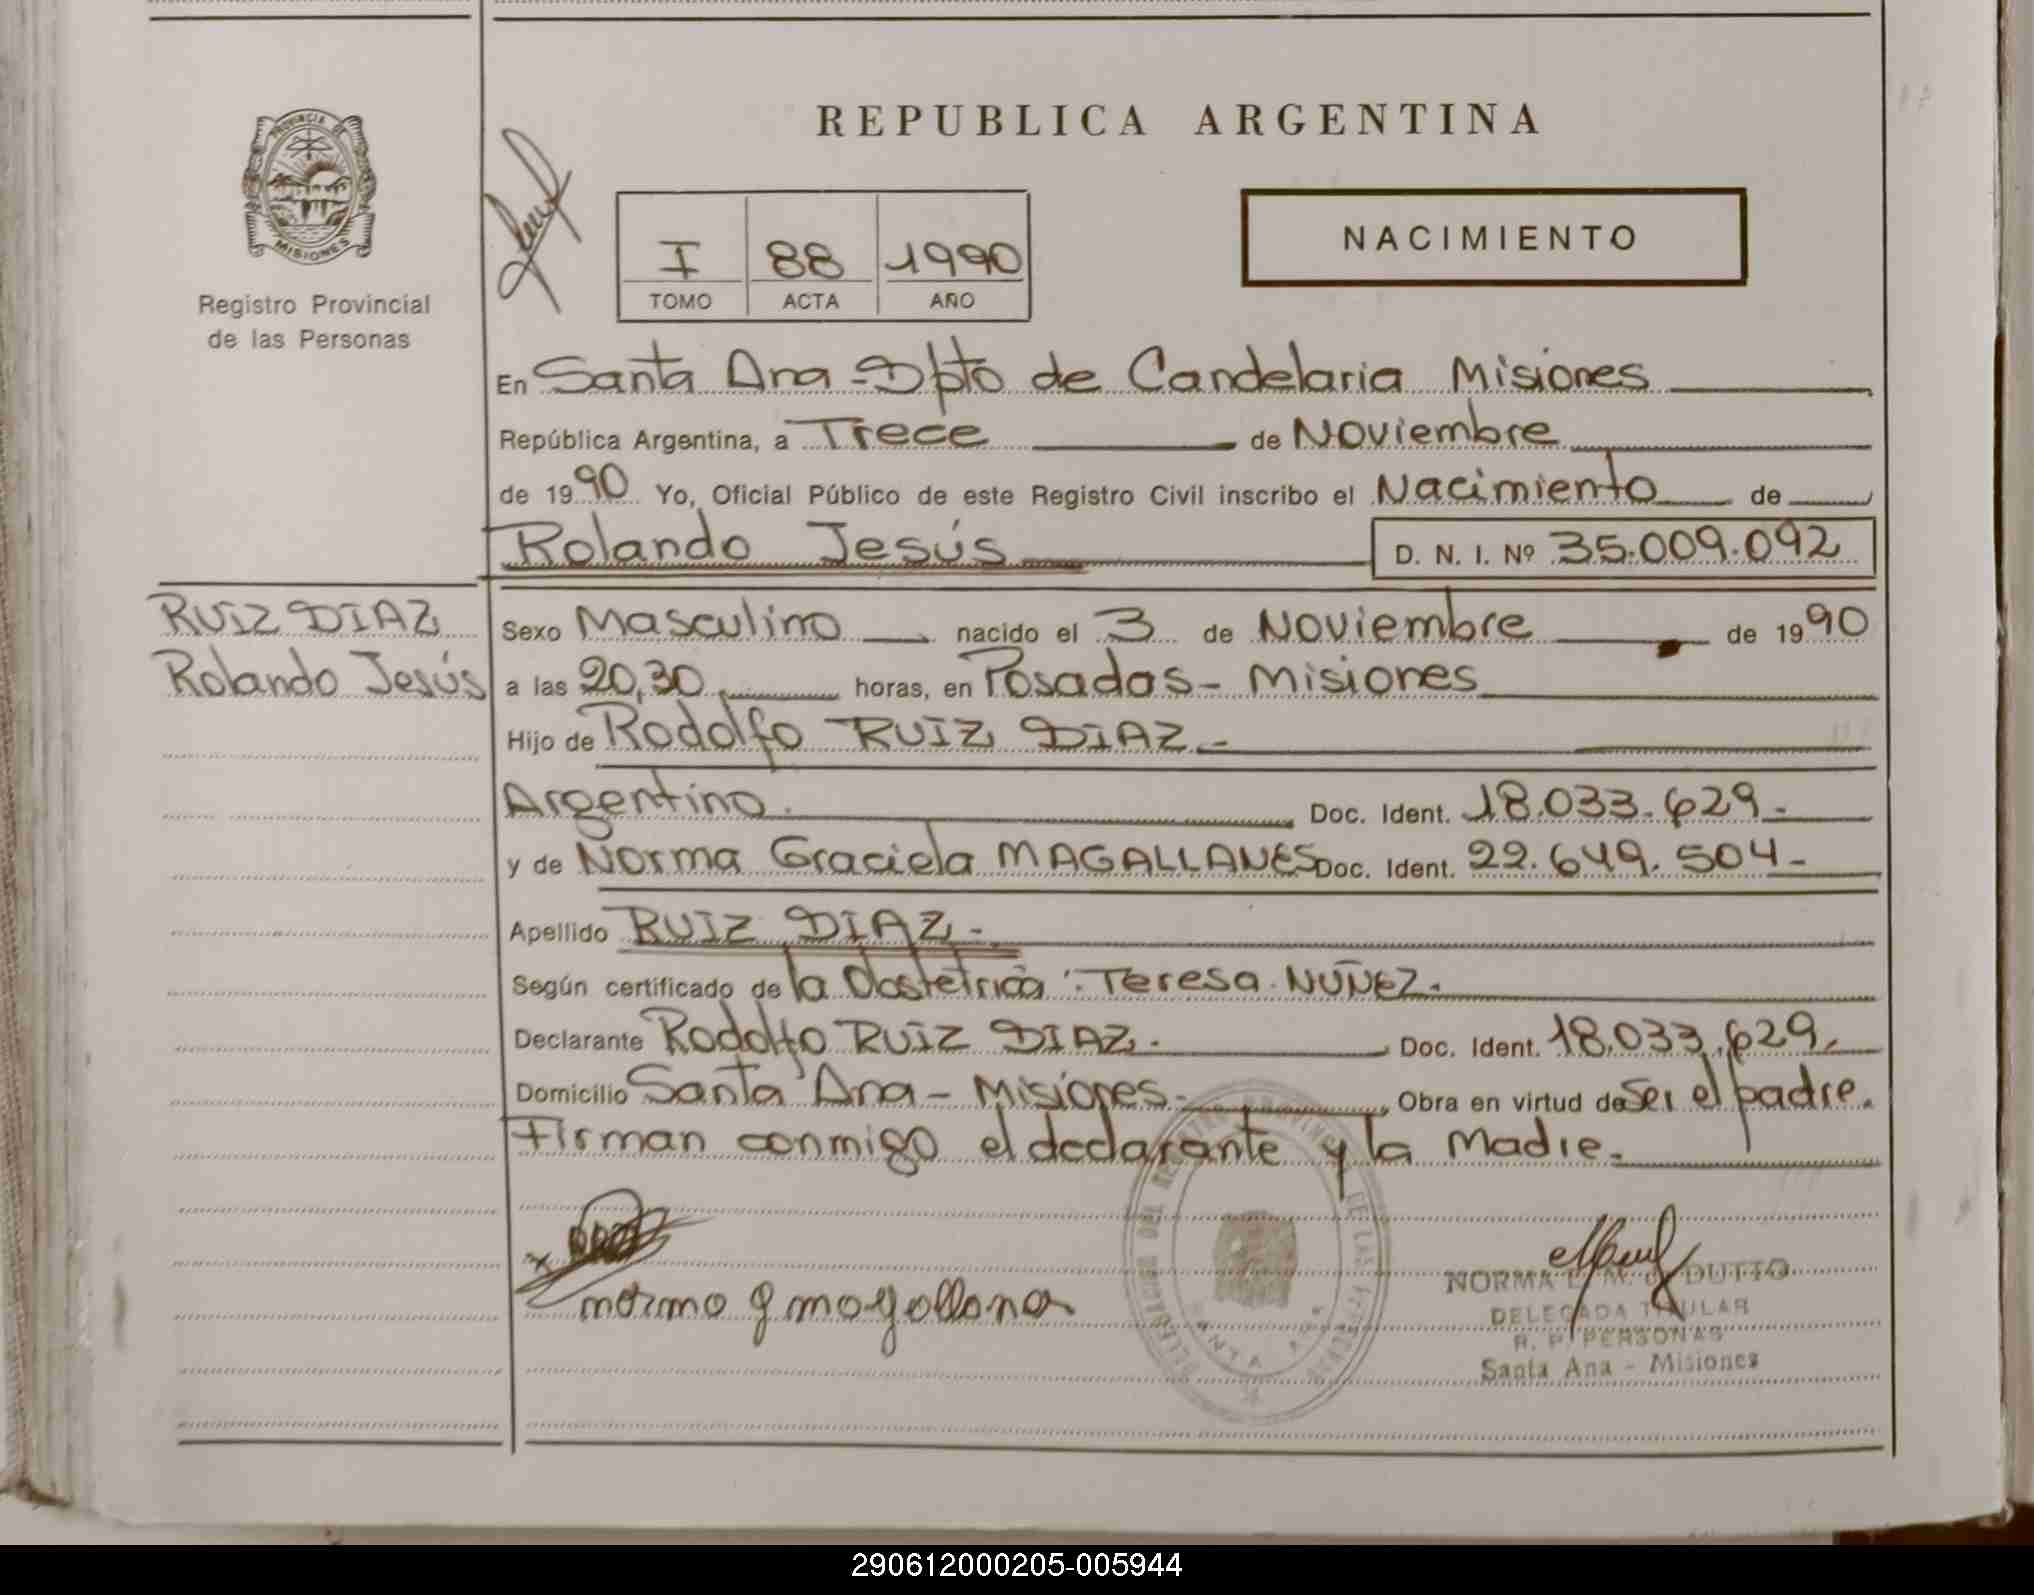 REPUBLICA ARGENTINA
PROVINCIA DE
MISIONES
Registro Provincial
de las Personas
I 88 1990
TOMO ACTA AÑO
NACIMIENTO
En Santa Ana - Dpto de Candelaria Misiones
República Argentina, a Trece de Noviembre
de 1990 Yo, Oficial Público de este Registro Civil inscribo el Nacimiento de
Rolando Jesús D. N. I. Nº 35.009.092
RUIZ DIAZ
Rolando Jesús
Sexo Masculino nacido el 3 de Noviembre de 1990
a las 20,30 horas, en Posadas - Misiones
Hijo de Rodolfo RUIZ DIAZ -
Argentino. Doc. Ident. 18.033.629 -
y de Norma Graciela MAGALLANES Doc. Ident. 22.649.504 -
Apellido RUIZ DIAZ -
Según certificado de la Obstetrica: Teresa NUÑEZ.
Declarante Rodolfo RUIZ DIAZ. Doc. Ident. 18.033.629.
Domicilio Santa Ana - Misiones. Obra en virtud de ser el padre.
Firman conmigo el declarante y la Madre.
NORMA L. M. DUTTO
DELEGADA TITULAR
R. P. PERSONAS
Santa Ana - Misiones
290612000205-005944